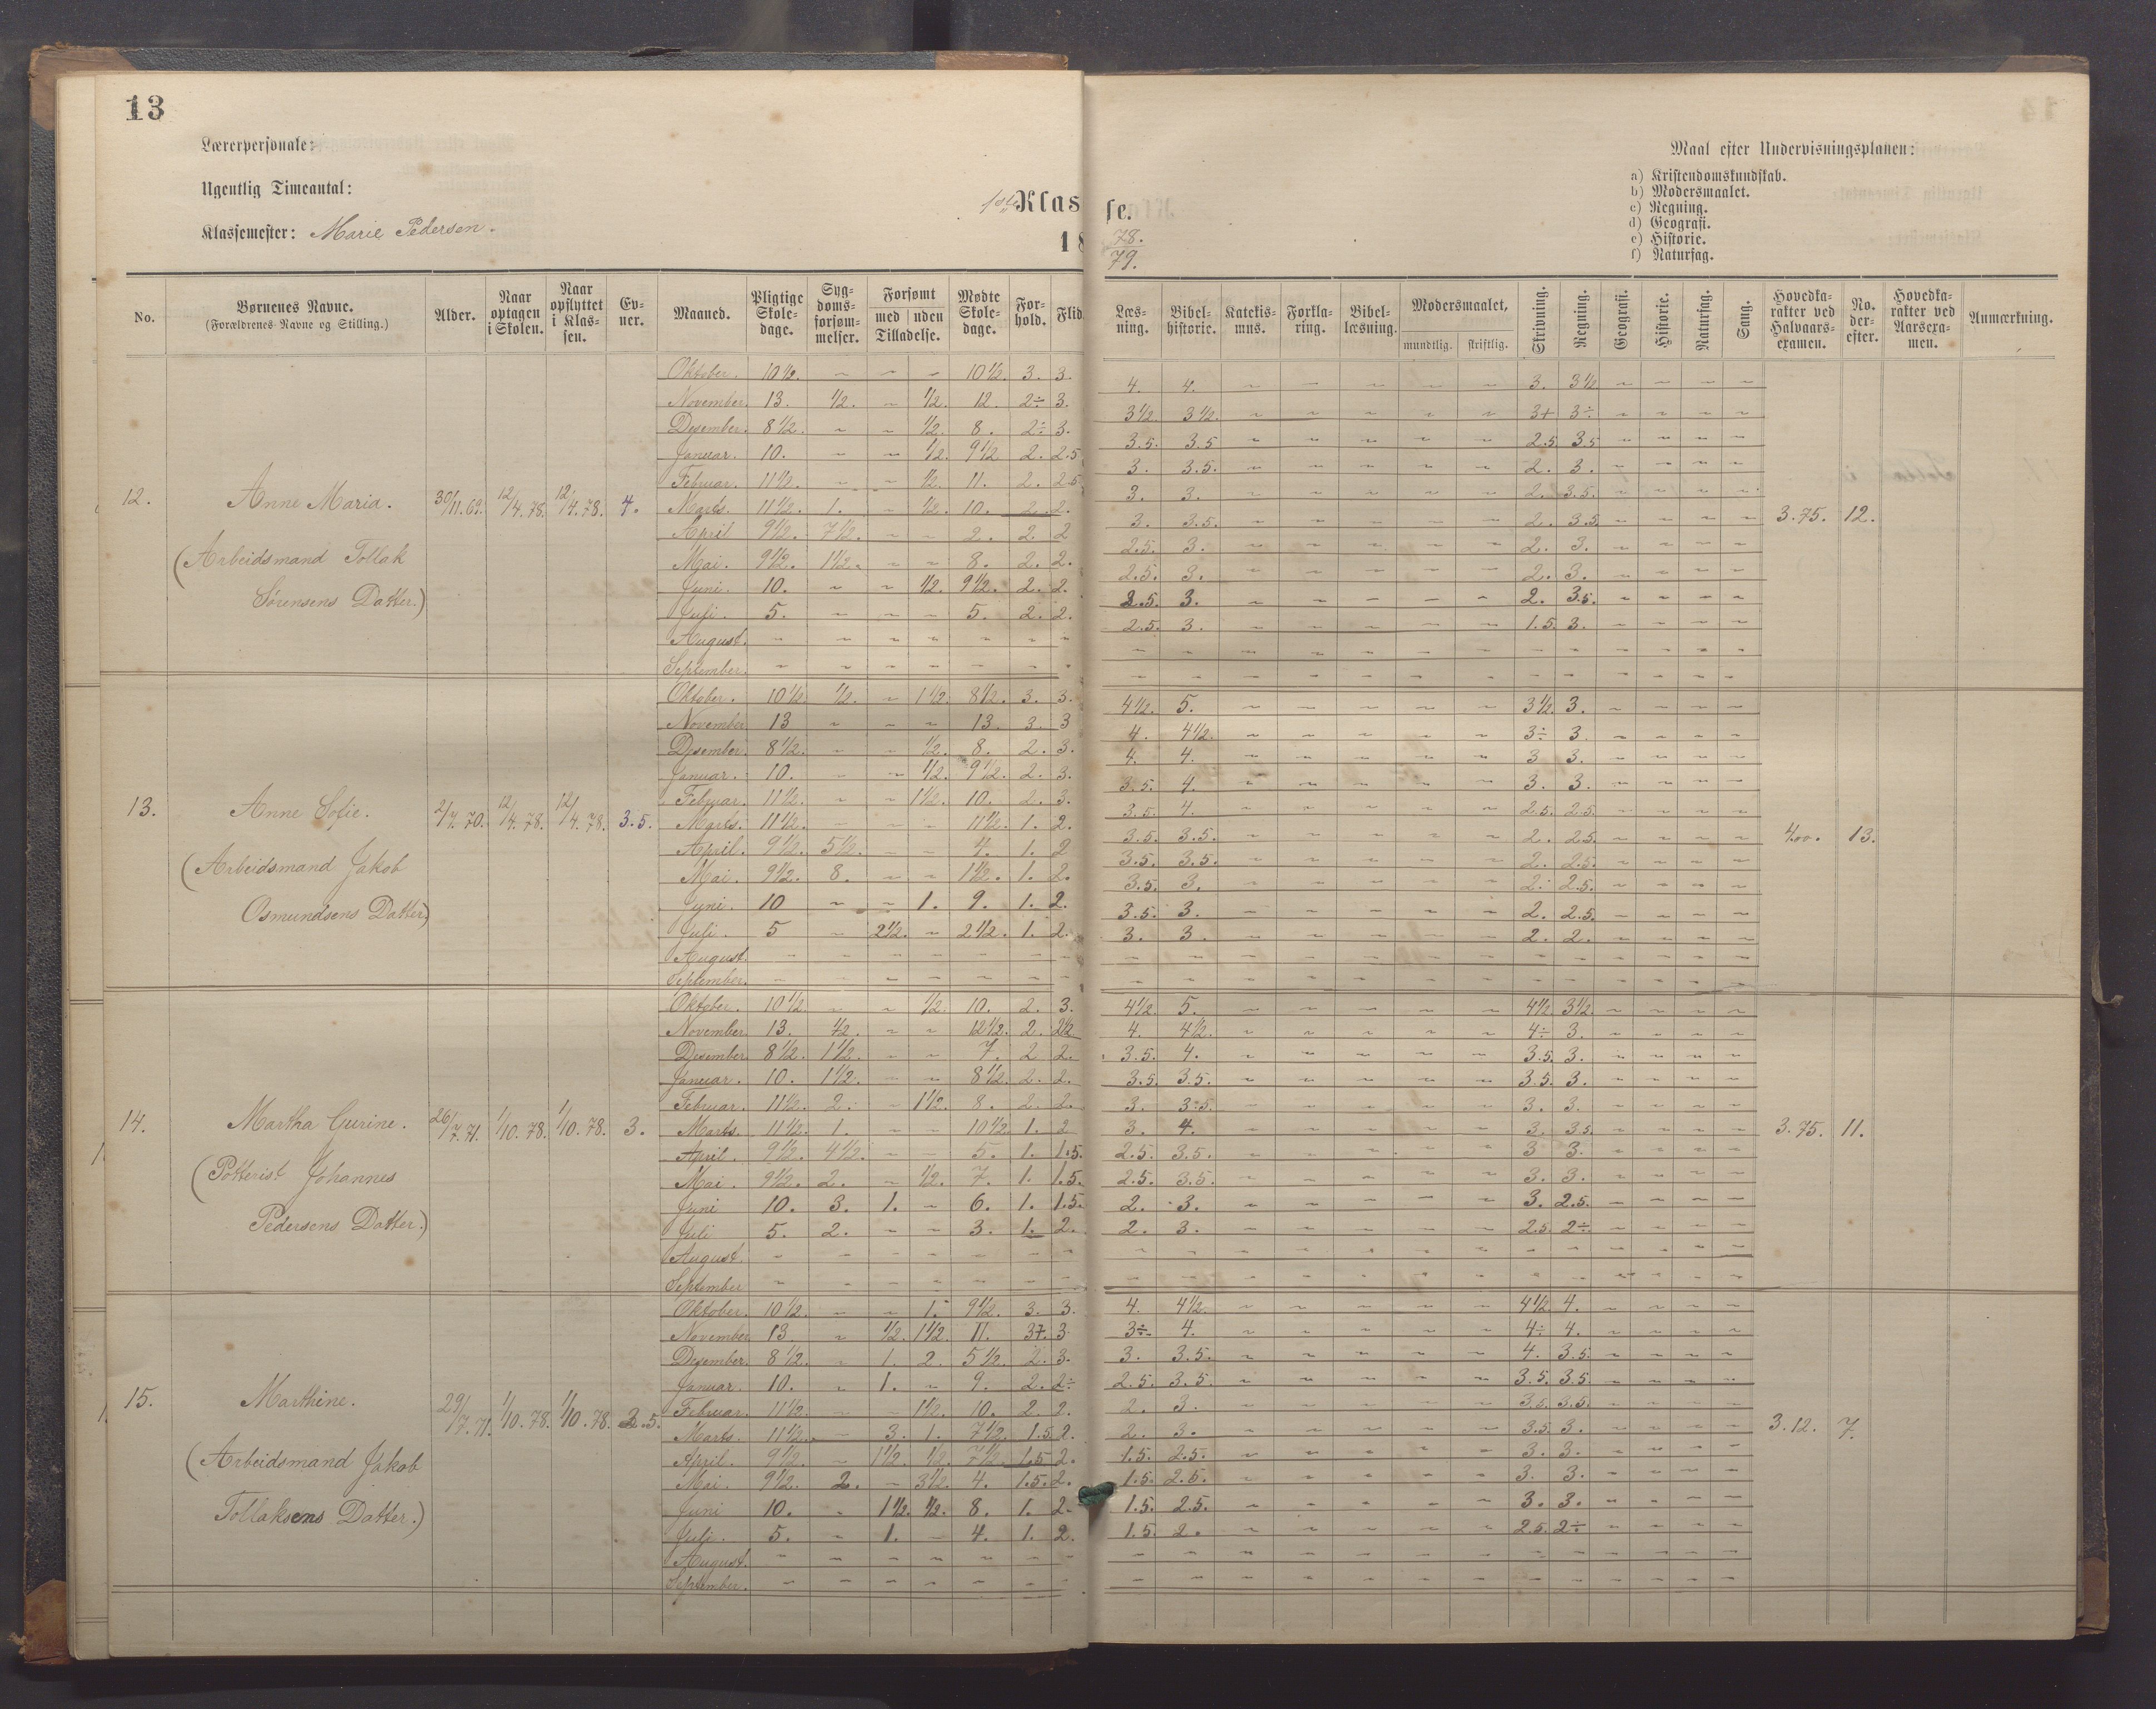 13
Lærerpersonale:
Ugentlig Timeantal:
Klassemester: Marie Pedersen.
1ste Klasse.
18 78./79.
Maal efter Undervisningsplanen:
a) Kristendomskundskab.
b) Modersmaalet.
c) Regning.
d) Geografi.
e) Historie.
f) Naturfag.
No. | Børnenes Navne. (Forældrenes Navne og Stilling.) | Alder. | Naar optagen i Skolen. | Naar opflyttet i Klassen. | Evner. | Maaned. | Pligtige Skoledage. | Sygdomsforsømmelser. | Forsømt med uden Tilladelse. | Mødte Skoledage. | Forhold. | Flid. | Læsning. | Bibelhistorie. | Katekismus. | Forklaring. | Bibellæsning. | Modersmaalet, mundtlig. skriftlig. | Skrivning. | Regning. | Geografi. | Historie. | Naturfag. | Sang. | Hovedkarakter ved Halvaarsexamen. | No. derefter. | Hovedkarakter ved Aarsexamen. | Anmærkning.
12. Anne Maria. 30/11.69. 12/4.78. 12/4.78. 4. 3.75. 12.
(Arbeidsmand Tollak
Sørensens Datter.)
Oktober. 10½. ~ ~ ~ 10½. 3. 3. 4. 4. ~ ~ ~ ~ ~ 3. 3½ ~ ~ ~ ~
November. 13. ½. ~ ½. 12. 2÷ 3. 3½ 3½. ~ ~ ~ ~ ~ 3+ 3÷. ~ ~ ~ ~
Desember. 8½. ~ ~ ½. 8. 2÷ 3. 3.5. 3.5 ~ ~ ~ ~ ~ 2.5 3.5 ~ ~ ~ ~
Januar. 10. ~ ~ ½. 9½ 2. 2.5 3. 3.5. ~ ~ ~ ~ ~ 2. 3. ~ ~ ~ ~
Februar. 11½. ~ ~ ½. 11. 2. 2.5 3. 3. ~ ~ ~ ~ ~ 2. 3.5. ~ ~ ~ ~
Marts. 11½. 1. ~ ½. 10. 2. 2. 3. 3.5. ~ ~ ~ ~ ~ 2. 3.5 ~ ~ ~ ~
April 9½. 7½. ~ ~ 2. 2. 2 2.5. 3. ~ ~ ~ ~ ~ 2. 3. ~ ~ ~ ~
Mai. 9½. 1½. ~ ~ 8. 2. 2. 2.5. 3. ~ ~ ~ ~ ~ 2. 3. ~ ~ ~ ~
Juni. 10. ~ ~ ½. 9½. 2. 2. 2.5. 3. ~ ~ ~ ~ ~ 2. 3.5. ~ ~ ~ ~
Juli. 5. ~ ~ ~ 5. 2. 2. 2.5. 3. ~ ~ ~ ~ ~ 1.5. 3. ~ ~ ~ ~
August. ~ ~ ~ ~ ~ ~ ~
September. ~ ~ ~ ~ ~ ~ ~
13. Anne Sofie. 2/7.70. 12/4.78. 12/4.78. 3.5. 4.00. 13.
(Arbeidsmand Jakob
Osmundsens Datter)
Oktober. 10½. ½. ~ 1½. 8½. 3. 3. 4½. 5. ~ ~ ~ ~ ~ 3½ 3. ~ ~ ~ ~
November 13 ~ ~ ~ 13. 3. 3 4. 4½. ~ ~ ~ ~ ~ 3÷ 3. ~ ~ ~ ~
Desember. 8½. ~ ~ ½. 8. 2. 3. 4. 4. ~ ~ ~ ~ ~ 3 3. ~ ~ ~ ~
Januar. 10. ~ ~ ½. 9½. 2. 3. 3.5. 4. ~ ~ ~ ~ ~ 3. 3. ~ ~ ~ ~
Februar. 11½. ~ ~ 1½. 10. 2. 3. 3.5. 4. ~ ~ ~ ~ ~ 2.5. 2.5. ~ ~ ~ ~
Marts. 11½. ~ ~ ~ 11½. 1. 2. 3.5. 3.5. ~ ~ ~ ~ ~ 2. 2.5. ~ ~ ~ ~
April. 9½. 5½. ~ ~ 4. 1. 2 3.5. 3.5. ~ ~ ~ ~ ~ 2. 2.5. ~ ~ ~ ~
Mai. 9½. 8. ~ ~ 1½. 1. 2. 3.5. 3. ~ ~ ~ ~ ~ 2. 2.5. ~ ~ ~ ~
Juni. 10 ~ ~ 1. 9. 1. 2. 3.5. 3. ~ ~ ~ ~ ~ 2. 2.5. ~ ~ ~ ~
Juli. 5 ~ 2½. ~ 2½. 1. 2. 3. 3. ~ ~ ~ ~ ~ 2. 2. ~ ~ ~ ~
August. ~ ~ ~ ~ ~ ~ ~
September. ~ ~ ~ ~ ~ ~ ~
14. Martha Gurine. 26/7.71. 1/10.78. 1/10.78. 3. 3.75. 11.
(Potterist Johannes
Pedersens Datter.)
Oktober. 10½. ~ ~ ½. 10. 2. 3. 4½ 5. ~ ~ ~ ~ ~ 4½ 3½. ~ ~ ~ ~
November 13. ½. ~ ~ 12½. 2. 2½ 4. 4½. ~ ~ ~ ~ ~ 4÷ 3. ~ ~ ~ ~
Desember 8½. 1½. ~ ~ 7. 2 2. 3.5. 4. ~ ~ ~ ~ ~ 3.5. 3. ~ ~ ~ ~
Januar. 10. 1½. ~ ~ 8½. 2. 2. 3.5. 3.5. ~ ~ ~ ~ ~ 3.5. 3. ~ ~ ~ ~
Februar. 11½. 2. ~ 1½. 8. 2. 2. 3. 3.5. ~ ~ ~ ~ ~ 3. 3. ~ ~ ~ ~
Marts. 11½. 1. ~ ~ 10½. 1. 2 3. 4. ~ ~ ~ ~ ~ 3. 3.5. ~ ~ ~ ~
April. 9½. 4½. ~ ~ 5. 1. 1.5. 2.5. 3.5. ~ ~ ~ ~ ~ 3 3. ~ ~ ~ ~
Mai. 9½. 2. ~ ½. 7. 1. 1.5. 2.5. 3.5. ~ ~ ~ ~ ~ 3. 3. ~ ~ ~ ~
Juni 10. 3. 1. ~ 6. 1. 1.5. 2. 3. ~ ~ ~ ~ ~ 3. 2.5. ~ ~ ~ ~
Juli 5. 2. ~ ~ 3. 1. 2. 2. 3. ~ ~ ~ ~ ~ 2.5. 2÷. ~ ~ ~ ~
August. ~ ~ ~ ~ ~ ~ ~
September ~ ~ ~ ~ ~ ~ ~
15. Marthine. 29/7.71. 1/10.78. 1/10.78. 2.5. 3.12. 7.
(Arbeidsmand Jakob
Tollaksens Datter.)
Oktober. 10½. ~ ~ 1. 9½. 3. 3. 4. 4½. ~ ~ ~ ~ ~ 4½ 4. ~ ~ ~ ~
November 13. ~ ½. 1½. 11. 3÷. 3 3÷. 4. ~ ~ ~ ~ ~ 4÷ 4. ~ ~ ~ ~
Desember. 8½. ~ 1. 2. 5½. 2. 3. 3. 3.5. ~ ~ ~ ~ ~ 4. 3.5. ~ ~ ~ ~
Januar. 10. ~ 1. ~ 9. 2. 2÷ 2.5. 3.5. ~ ~ ~ ~ ~ 3.5. 3.5. ~ ~ ~ ~
Februar. 11½. ~ ~ 1½. 10. 2. 2. 2. 3. ~ ~ ~ ~ ~ 3.5. 3.5. ~ ~ ~ ~
Marts. 11½. ~ 3. 1. 7½. 1.5. 2. 2. 3. ~ ~ ~ ~ ~ 3.5. 3. ~ ~ ~ ~
April. 9½. ~ 1½. ½. 7½. 1.5 2. 1.5. 2.5. ~ ~ ~ ~ ~ 3. 3. ~ ~ ~ ~
Mai. 9½. 2. ~ 3½. 4. 1.5. 2. 1.5. 2.5. ~ ~ ~ ~ ~ 3. 3. ~ ~ ~ ~
Juni 10. ~ 1½. ½. 8. 1. 2. 1.5. 2.5. ~ ~ ~ ~ ~ 3. 3. ~ ~ ~ ~
Juli. 5. ~ 1. ~ 4. 1. 2. 1.5. 2. ~ ~ ~ ~ ~ 2.5. 2÷ ~ ~ ~ ~
August. ~ ~ ~ ~ ~ ~ ~
September. ~ ~ ~ ~ ~ ~ ~